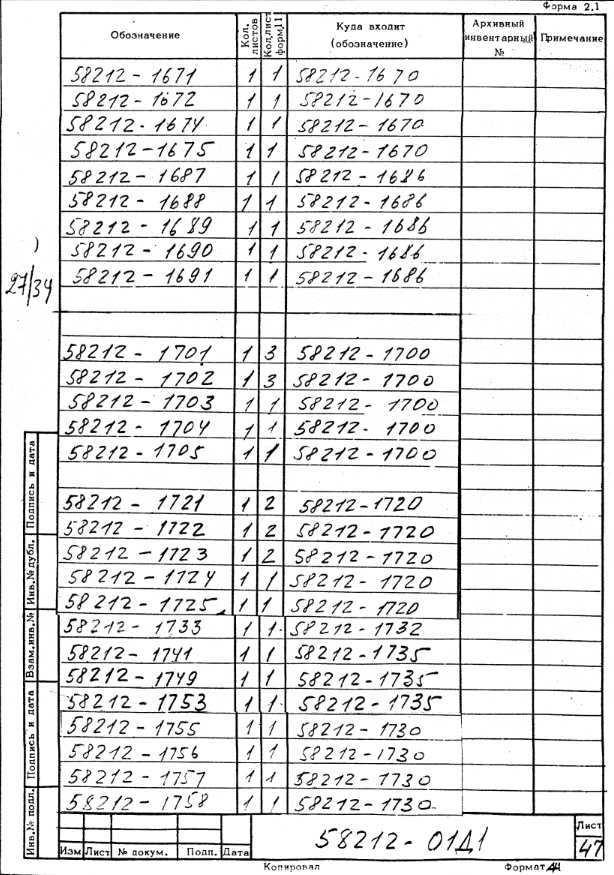 Форма 2.1
Обозначение | Кол. листов | Кол.лист форм.11 | Куда входит (обозначение) | Архивный инвентарный № | Примечание
58212-1671 1 1 58212-1670
58212-1672 1 1 58212-1670
58212-1674 1 1 58212-1670
58212-1675 1 1 58212-1670
58212-1687 1 1 58212-1686
58212-1688 1 1 58212-1686
58212-1689 1 1 58212-1686
58212-1690 1 1 58212-1686
58212-1691 1 1 58212-1686
27/34
58212-1701 1 3 58212-1700
58212-1702 1 3 58212-1700
58212-1703 1 1 58212-1700
58212-1704 1 1 58212-1700
58212-1705 1 1 58212-1700
58212-1721 1 2 58212-1720
58212-1722 1 2 58212-1720
58212-1723 1 2 58212-1720
58212-1724 1 1 58212-1720
58212-1725 1 1 58212-1720
58212-1733 1 1 58212-1732
58212-1741 1 1 58212-1735
58212-1749 1 1 58212-1735
58212-1753 1 1 58212-1735
58212-1755 1 1 58212-1730
58212-1756 1 1 58212-1730
58212-1757 1 1 58212-1730
58212-1758 1 1 58212-1730
Подпись и дата
Инв.№ дубл.
Взам.инв.№
Подпись и дата
Инв.№ подл.
Изм Лист № докум. Подп. Дата
58212-01Д1
Лист
47
Копировал
Формат А4